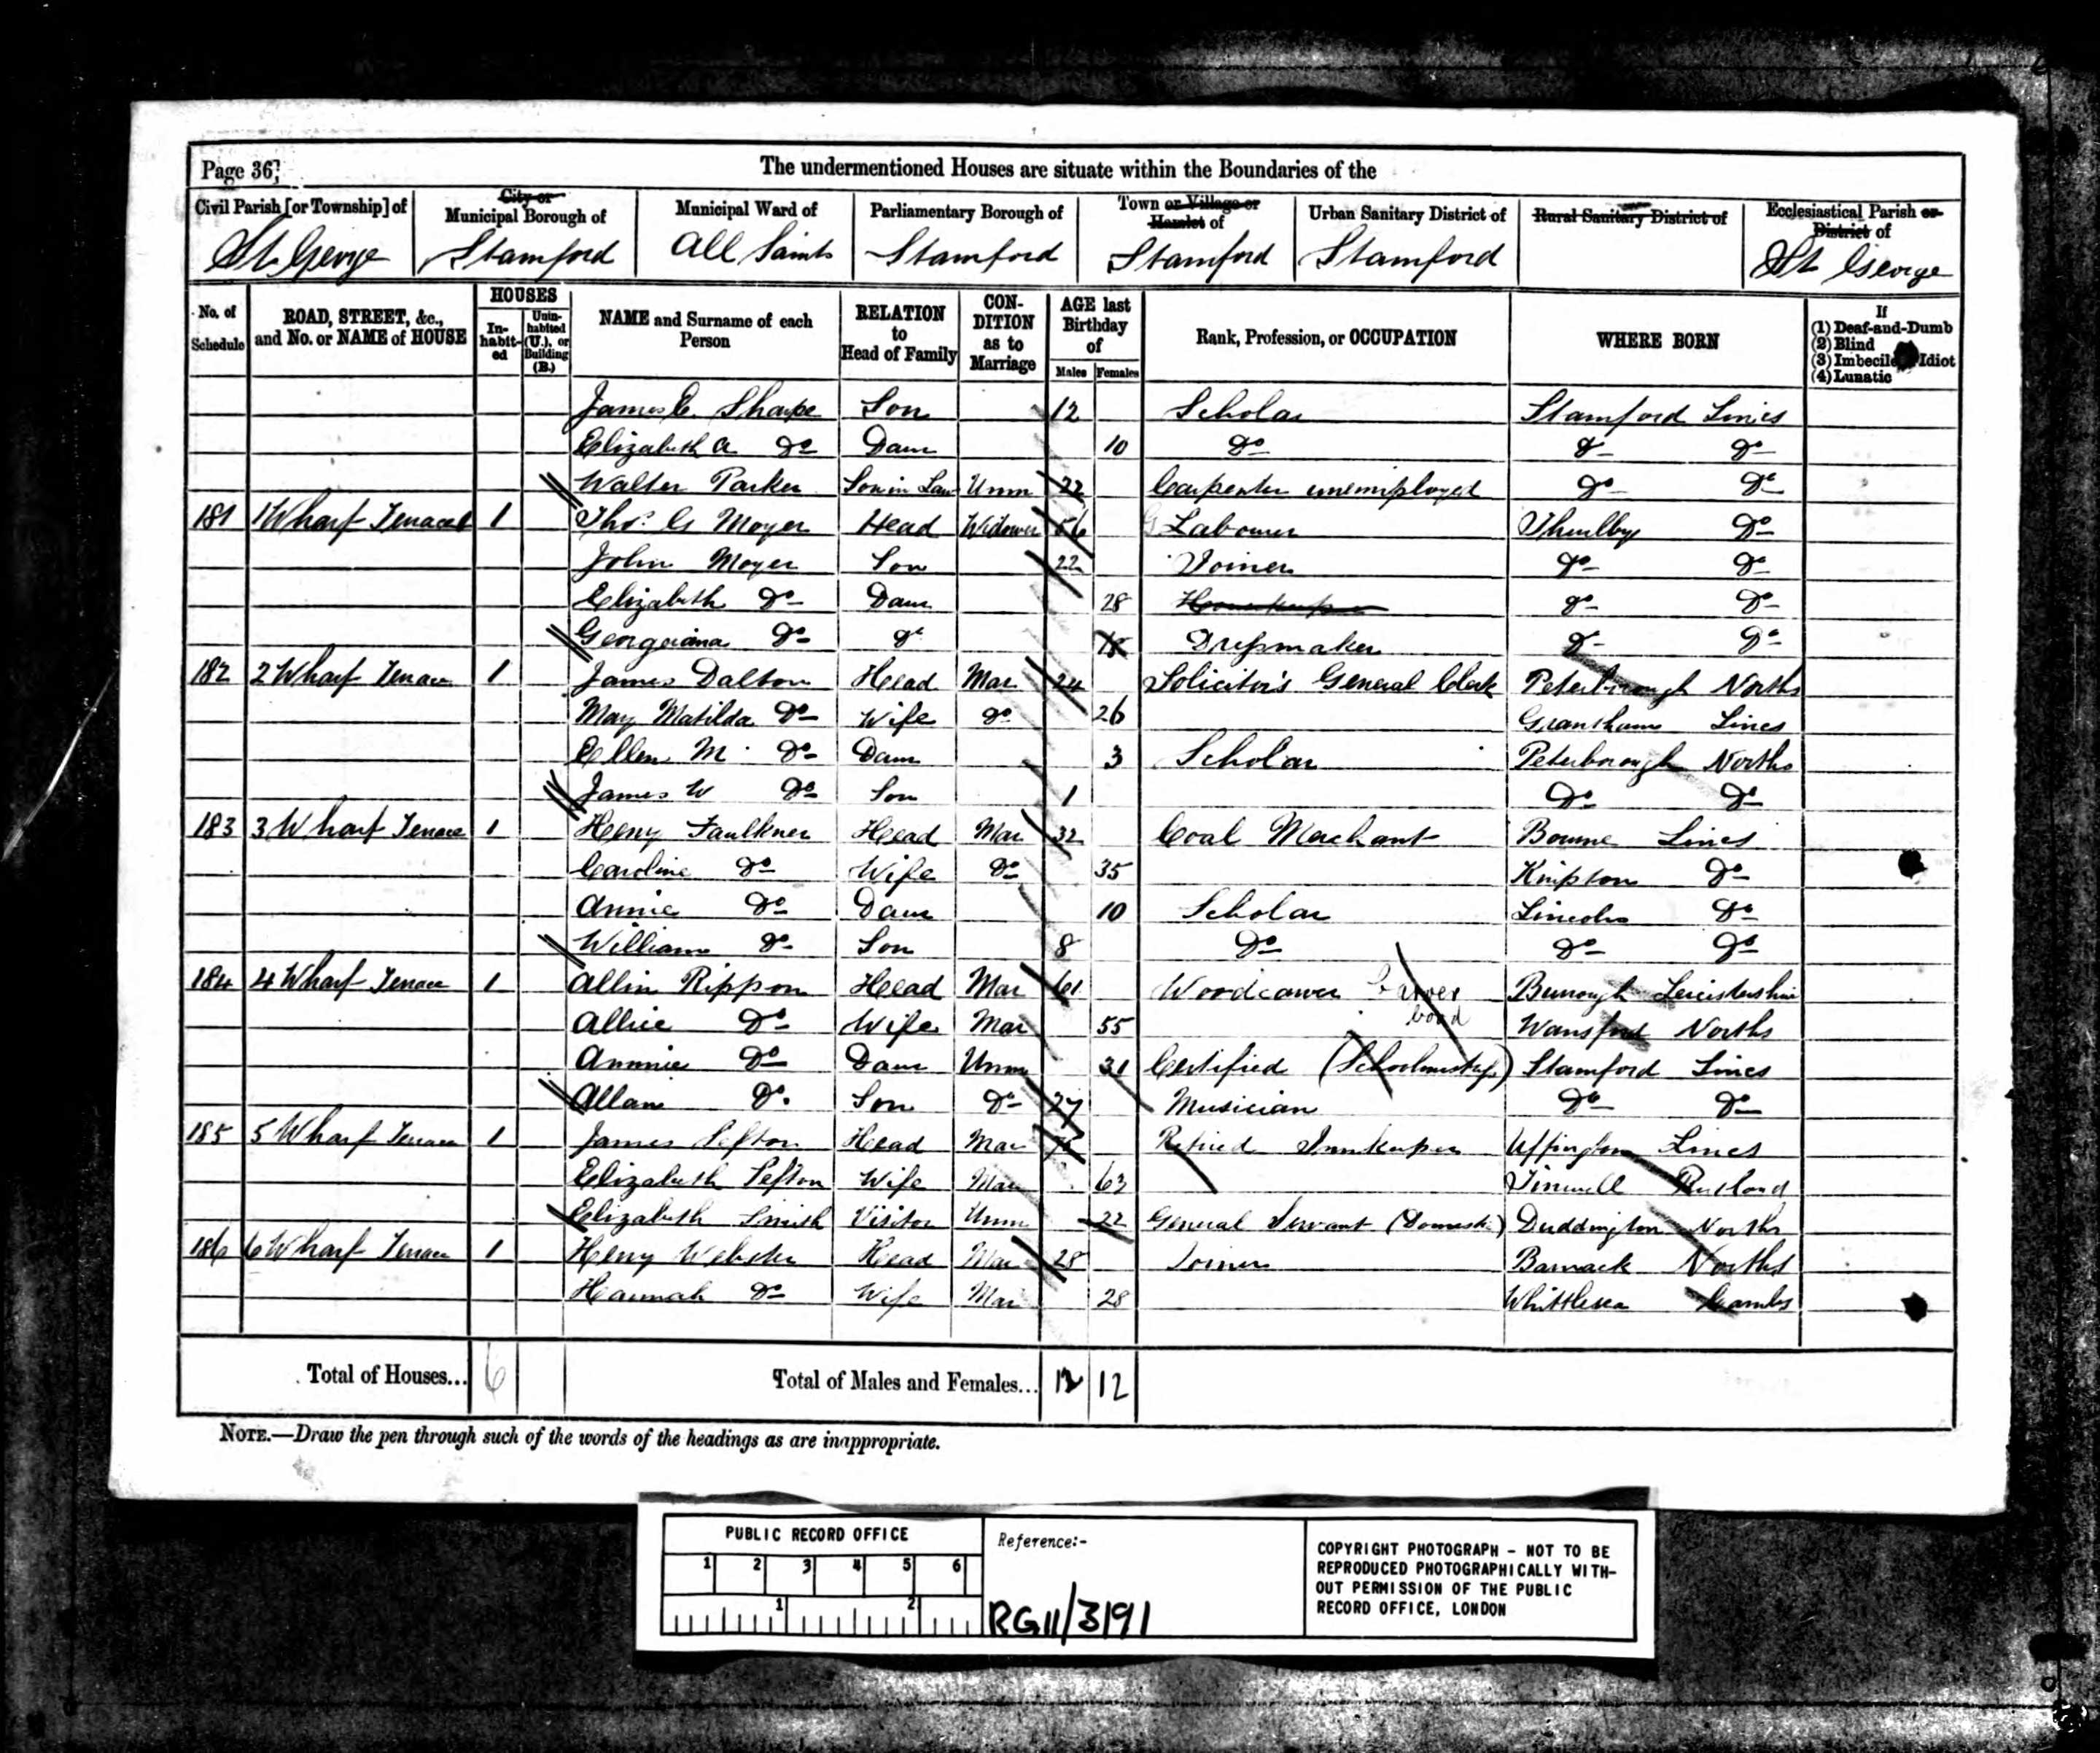 Page 36]
The undermentioned Houses are situate within the Boundaries of the
Civil Parish [or Township] of
City or Municipal Borough of
Municipal Ward of
Parliamentary Borough of
Town or Village or Hamlet of
Urban Sanitary District of
Rural Sanitary District of
Ecclesiastical Parish or District of
St. George
Stamford
All Saints
Stamford
Stamford
Stamford
St George
No. of Schedule
ROAD, STREET, &c., and No. or NAME of HOUSE
HOUSES
In-habit-ed
Unin-habited (U.), or Building (B.)
NAME and Surname of each Person
RELATION to Head of Family
CON-DITION as to Marriage
AGE last Birthday of
Males Females
Rank, Profession, or OCCUPATION
WHERE BORN
If
(1) Deaf-and-Dumb
(2) Blind
(3) Imbecile Idiot
(4) Lunatic
James C. Sharpe Son 12 Scholar Stamford Lincs
Elizabeth A Do Daur 10 Do Do Do
Walter Parker Son in Law Unm 22 Carpenter unemployed Do Do
181 1 Wharf Terrace 1 Thos. G Moyer Head Widower 56 Labourer Thurlby Do
John Moyer Son 22 Joiner Do Do
Elizabeth Do Daur 28 Housekeeper Do Do
Georgiana Do Do 18 Dressmaker Do Do
182 2 Wharf Terrace 1 James Dalton Head Mar 24 Solicitor's General Clerk Peterborough Norths
Mary Matilda Do Wife Do 26 Grantham Lincs
Ellen M Do Daur 3 Scholar Peterborough Norths
James W Do Son 1 Do Do
183 3 Wharf Terrace 1 Henry Faulkner Head Mar 32 Coal Merchant Bourne Lincs
Caroline Do Wife Do 35 Knipton Do
Annie Do Daur 10 Scholar Lincoln Do
William Do Son 8 Do Do Do
184 4 Wharf Terrace 1 Allin Rippon Head Mar 61 Woodcarver Carver Burrough Leicestershire
wood
Allice Do Wife Mar 55 Wansford Norths
Annnie Do Daur Unm 31 Certified (Schoolmistress) Stamford Lincs
Allan Do. Son Do 27 Musician Do Do
185 5 Wharf Terrace 1 James Sefton Head Mar Retired Innkeeper Uffington Lincs
Elizabeth Sefton Wife Mar 63 Tinwell Rutland
Elizabeth Smith Visitor Unm 22 General Servant (Domestic) Duddington Norths
186 6 Wharf Terrace 1 Henry Webster Head Mar 28 Joiner Barnack Norths
Hannah Do Wife Mar 28 Whittlesea Cambs
Total of Houses... 6
Total of Males and Females... 12 12
NOTE.—Draw the pen through such of the words of the headings as are inappropriate.
PUBLIC RECORD OFFICE
1 2 3 4 5 6
1 2
Reference:-
RG11/3191
COPYRIGHT PHOTOGRAPH - NOT TO BE
REPRODUCED PHOTOGRAPHICALLY WITH-
OUT PERMISSION OF THE PUBLIC
RECORD OFFICE, LONDON